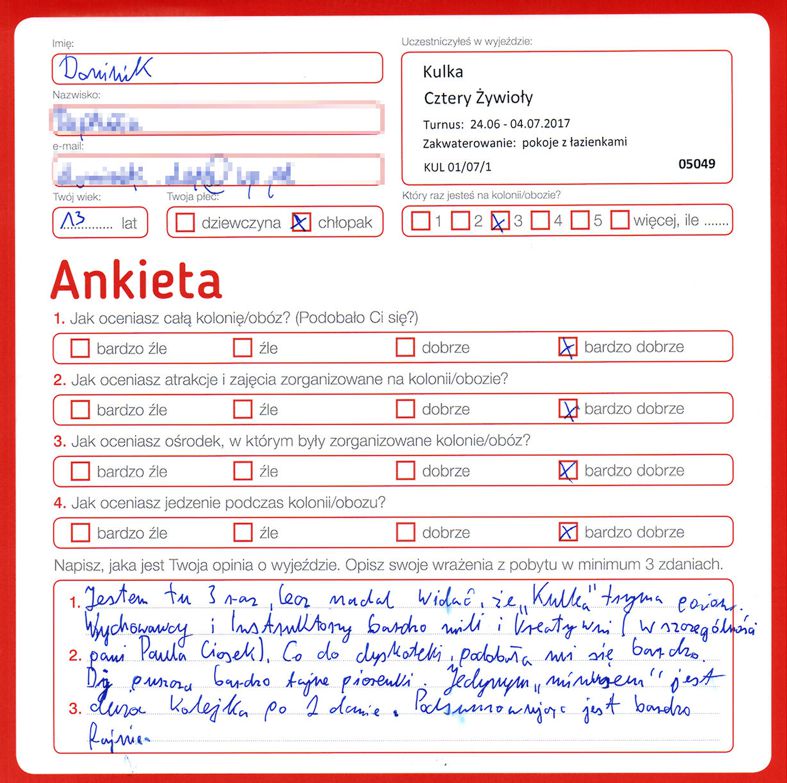 Imię:
Dominik
Nazwisko:
e-mail:
Twój wiek:
13 lat
Twoja płeć:
dziewczyna chłopak
Uczestniczyłeś w wyjeździe:
Kulka
Cztery Żywioły
Turnus: 24.06 - 04.07.2017
Zakwaterowanie: pokoje z łazienkami
KUL 01/07/1 05049
Który raz jesteś na kolonii/obozie?
1 2 3 4 5 więcej, ile .......
Ankieta
1. Jak oceniasz całą kolonię/obóz? (Podobało Ci się?)
bardzo źle źle dobrze bardzo dobrze
2. Jak oceniasz atrakcje i zajęcia zorganizowane na kolonii/obozie?
bardzo źle źle dobrze bardzo dobrze
3. Jak oceniasz ośrodek, w którym były zorganizowane kolonie/obóz?
bardzo źle źle dobrze bardzo dobrze
4. Jak oceniasz jedzenie podczas kolonii/obozu?
bardzo źle źle dobrze bardzo dobrze
Napisz, jaka jest Twoja opinia o wyjeździe. Opisz swoje wrażenia z pobytu w minimum 3 zdaniach.
1. Jestem tu 3 raz, lecz nadal widać, że „Kulka" trzyma poziom.
Wychowawcy i Instruktorzy bardzo mili i kreatywni (w szczególności
2. pani Paula Ciosek). Co do dyskoteki, podobała mi się bardzo.
Dj puszcza bardzo fajne piosenki. Jedynym „minusem" jest
3. duża kolejka po 2 danie. Podsumowując jest bardzo
fajnie.